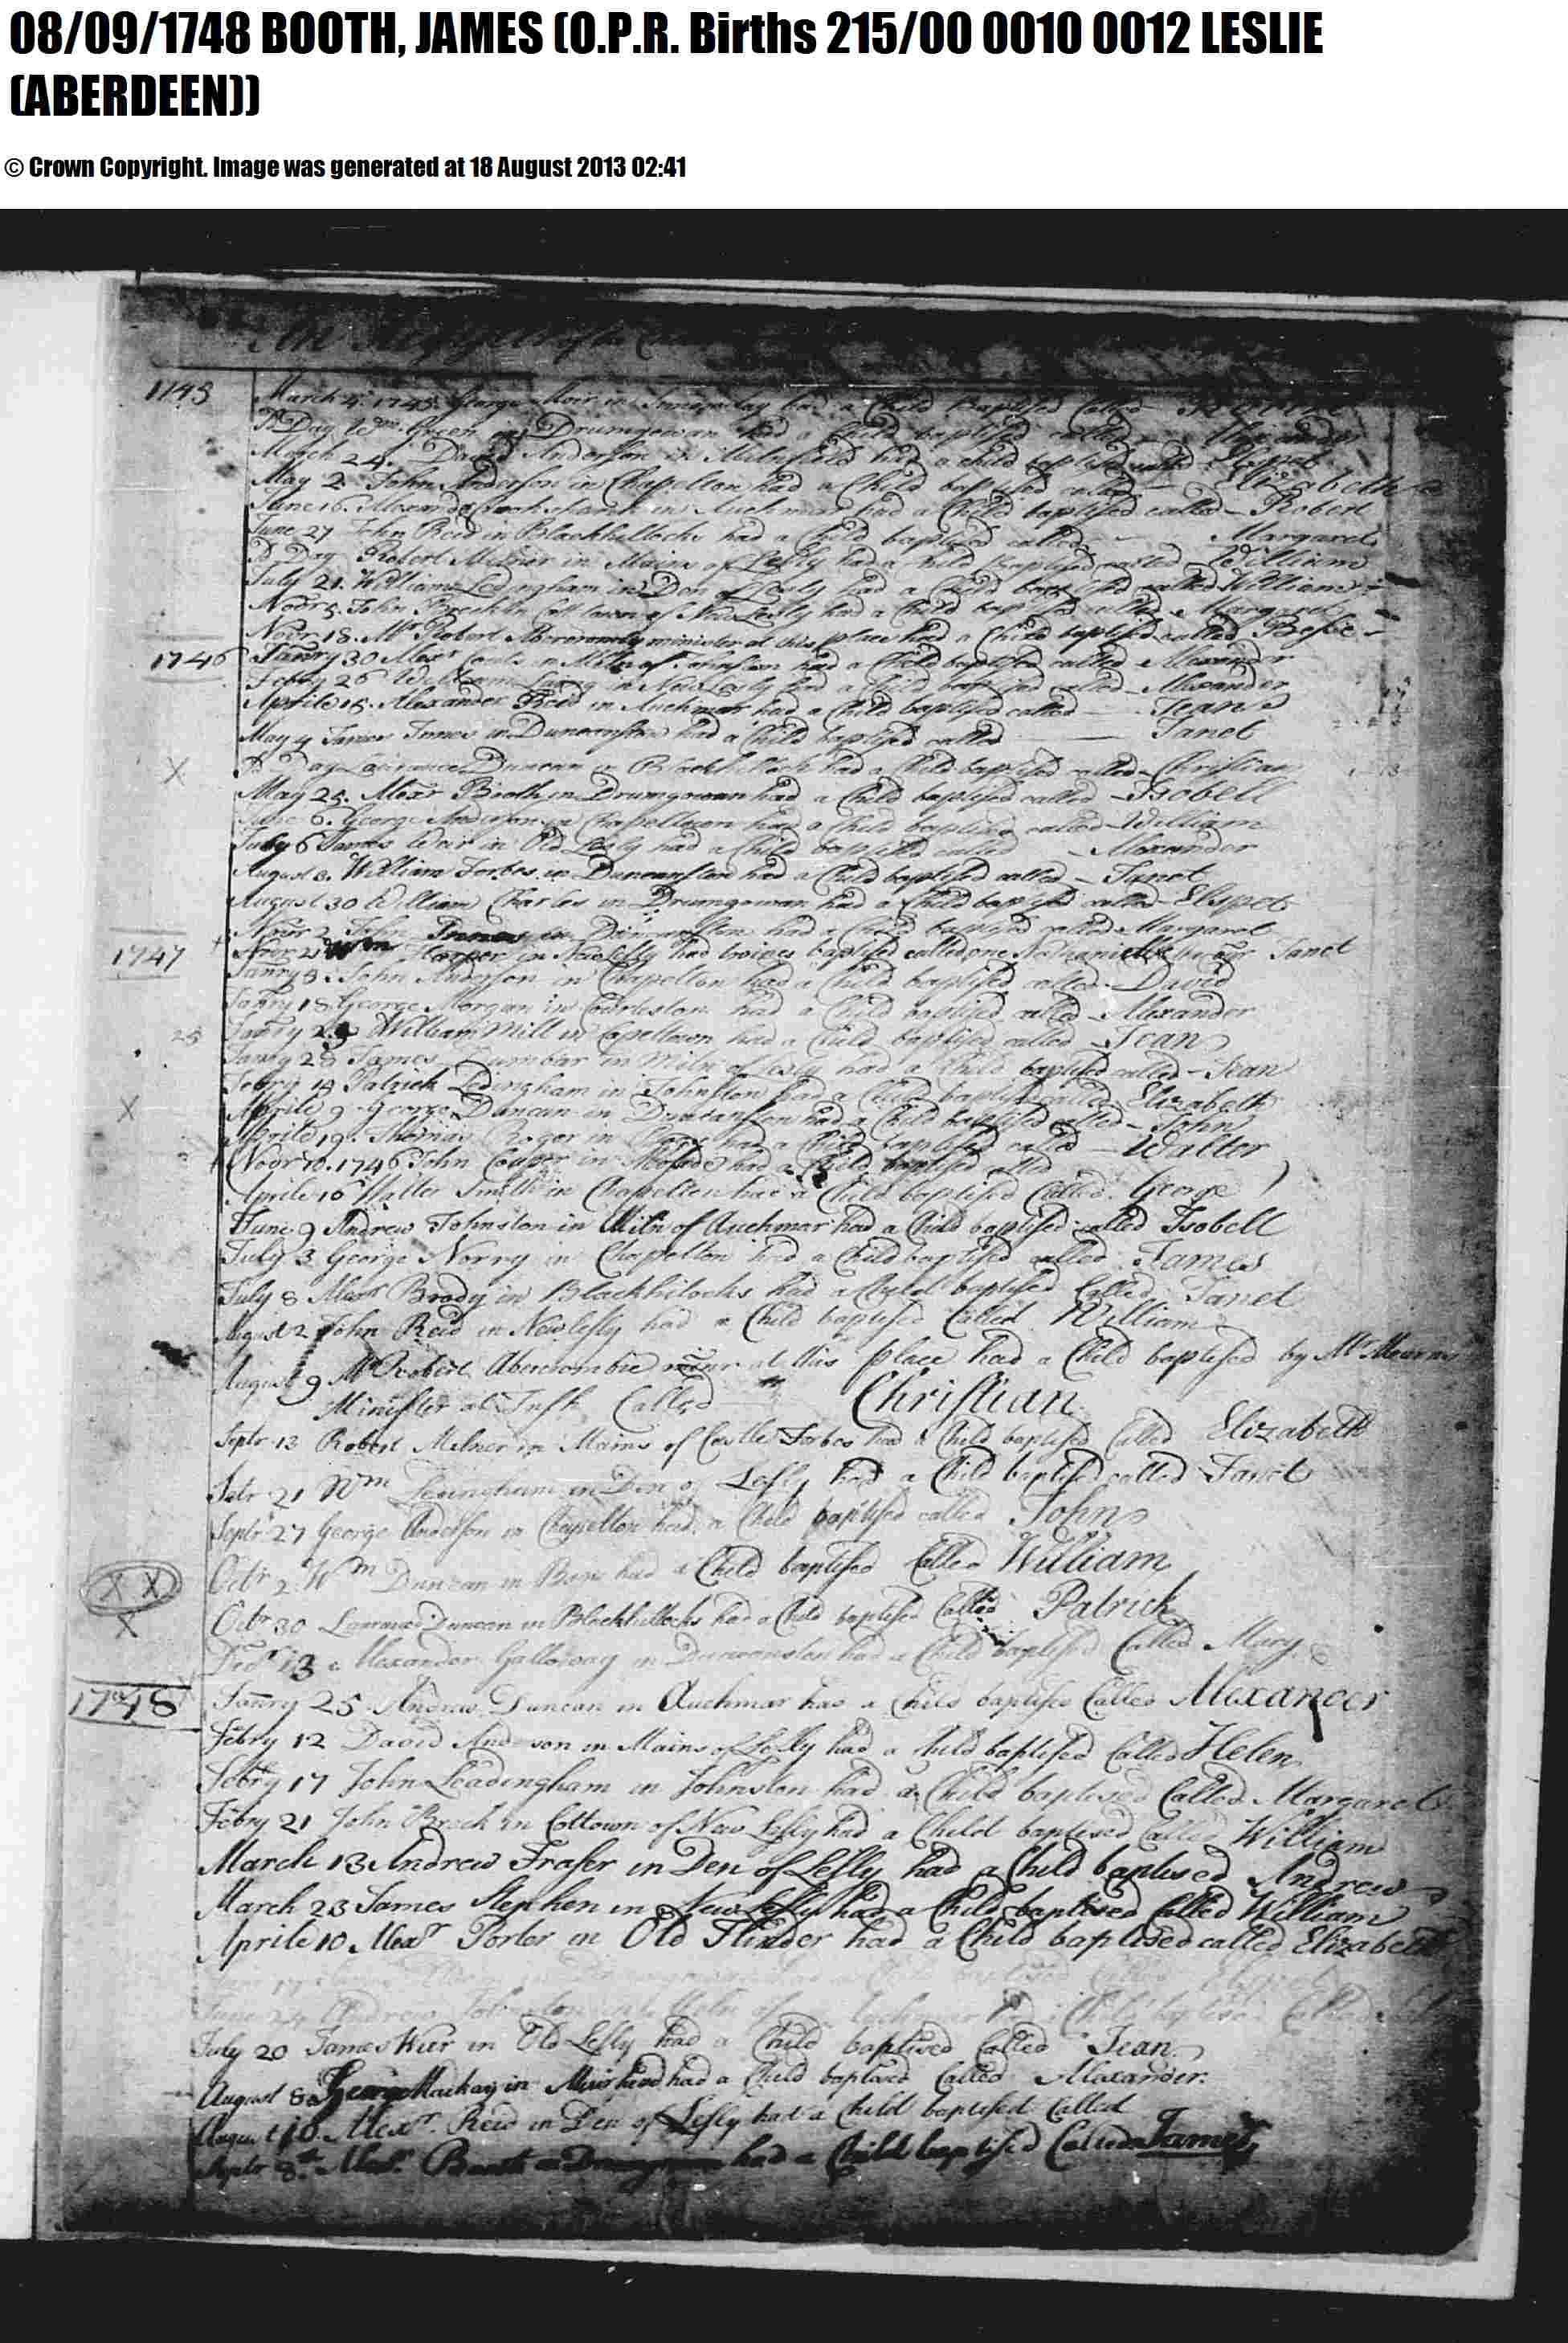 08/09/1748 BOOTH, JAMES (O.P.R. Births 215/00 0010 0012 LESLIE
(ABERDEEN))
© Crown Copyright. Image was generated at 18 August 2013 02:41
1745
March 4. 1745. George Moir in had a Child Baptised Called
D Day Wm Green in Drumgowan had a Child baptised called Alexander
March 24. David Anderson in Milnfield had a child baptised called Elspet
May 2 John Anderson in Chapelton had a Child baptised called Elizabeth
June 16. Alexander in Auchmar had a Child baptised called Robert
June 27 John Reid in Blackhillocks had a Child baptised called Margaret
D Day Robert Milner in Mains of Lesly had a Child Baptised called William
July 21. William Ledingham in Den of Lesly had a Child baptised called William
Novr 5. John in Cottown of New Lesly had a Child baptised called Margaret
Novr 18. Mr Robert Abercromby minister at this place had a Child baptised called
1746
Janry 30 Alexr Couts in Miln of Johnston had a Child baptised called Alexander
Febry 26 William in New Lesly had a Child baptised called Alexander
Aprile 15. Alexander Reid in Auchmar had a Child baptised called Jean
May 4 James Innes in Duncanston had a Child baptised called Janet
D Day Laurance Duncan in Blackhillock had a Child baptised called Christian
May 25. Alexr Booth in Drumgowan had a Child baptised called Isobell
June 6. George Anderson in Chapeltown had a Child baptised called William
July 6 James Weir in Old Lesly had a Child baptised called Alexander
August 8. William Forbes in Duncanston had a Child baptised called Janet
August 30 William Charles in Drumgowan had a Child baptised called Elspet
Novr 2 John Innes in Duncanston had a Child baptised called Margaret
Novr 21 Wm Harper in New Lesly had twines baptised called one Nathaniel Janet
1747
Janry 8. John Anderson in Chapelton had a Child baptised called David
Janry 18 George Morgan in had a Child baptised called Alexander
25
Janry 25 William Mill in Capeltown had a Child baptised called Jean
Janry 28 James Dumbar in Miln of Lesly had a Child baptised called Jean
Febry 19 Patrick Ledingham in Johnston had a Child baptised called Elizabeth
X
Aprile 9 George Duncan in Duncanston had a Child baptised called John
Aprile 19. Thomas Roger in had a Child baptised called Walter
Novr 10. 1746 John Couper in had a Child baptised called
Aprile 16 Walter Smith in Chapelton had a Child baptised Called George
June 9 Andrew Johnston in Miln of Auchmar had a Child baptised called Isobell
July 3 George Norry in Chapelton had a Child baptised called James
July 8 Alexr Brody in Blackhilocks had a Child baptised Called Janet
August 2 John Reid in New Lesly had a Child baptised Called William
August 9 Mr Robert Abercrombie minr at this place had a Child baptised by Mr Mearns
Minister at Insh Called Christian
Septr 13 Robert Milner in Mains of Castle Forbes had a Child baptised Called Elizabeth
Sepr 21 Wm Ledingham in Den of Lesly had a Child baptised called Janet
Septr 27 George Anderson in Chapelton had a Child baptised called John
X X
Octr 2 Wm Duncan in had a Child baptised Called William
X
Octr 30 Laurance Duncan in Blackhillocks had a Child baptised Called Patrick
Decr 13 Alexander Galloway in Duncanston had a Child baptised Called Mary
1748
Janry 25 Andrew Duncan in Auchmar had a Child baptised Called Alexander
Febry 12 David Anderson in Mains of Lesly had a Child baptised Called Helen
Febry 17 John Leadingham in Johnston had a Child baptised Called Margaret
Febry 21 John in Cottown of New Lesly had a Child baptised Called William
March 13 Andrew Fraser in Den of Lesly had a Child baptised Andrew
March 23 James Stephen in New Lesly had a Child baptised Called William
Aprile 10 Alexr Porter in Old Flinder had a Child baptised called Elizabeth
June 24 Andrew Johnston in Miln of Auchmar had a Child baptised Called
July 20 James Wier in Old Lesly had a Child baptised Called Jean
August 8 George Mackay in Muirhead had a Child baptised Called Alexander.
August 10. Alexr. Reid in Den of Lesly had a Child baptised Called
Septr 8th. Alexr. Booth in Drumgowan had a Child baptised Called James